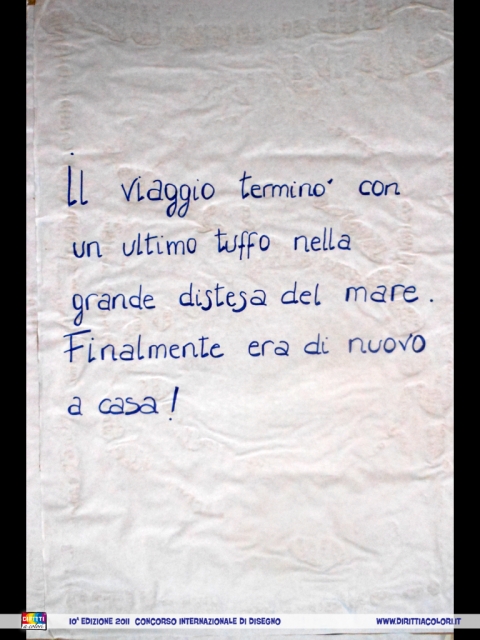 Il viaggio terminò con
un ultimo tuffo nella
grande distesa del mare.
Finalmente era di nuovo
a casa!
DIRITTI
a colori
10ª EDIZIONE 2011 CONCORSO INTERNAZIONALE DI DISEGNO
WWW.DIRITTIACOLORI.IT